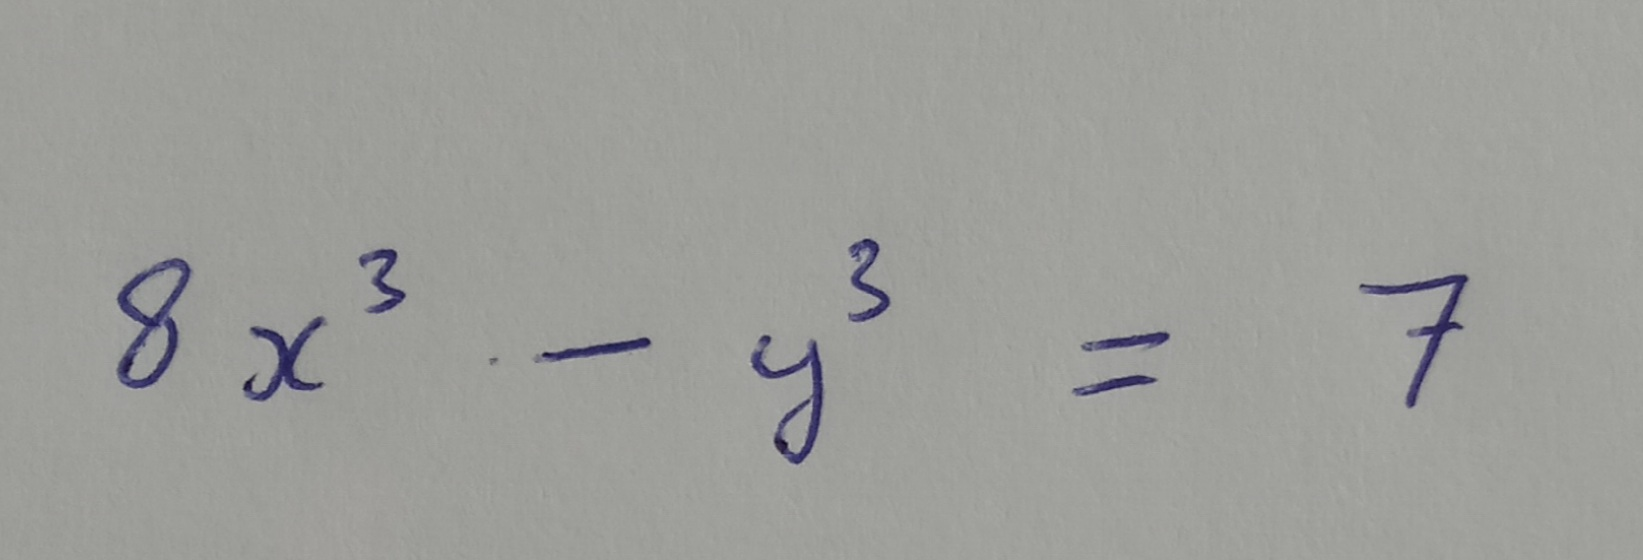 8x³ - y³ = 7